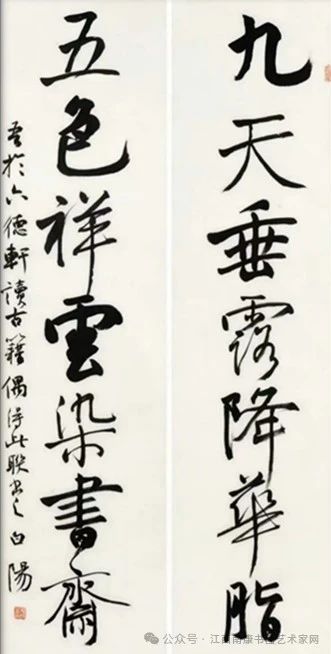 九天垂露降華脂
五色祥雲染書齋
吾於六德軒讀古籍偶得此聯出之 白陽
公众号 · 江西南康书画艺术家网